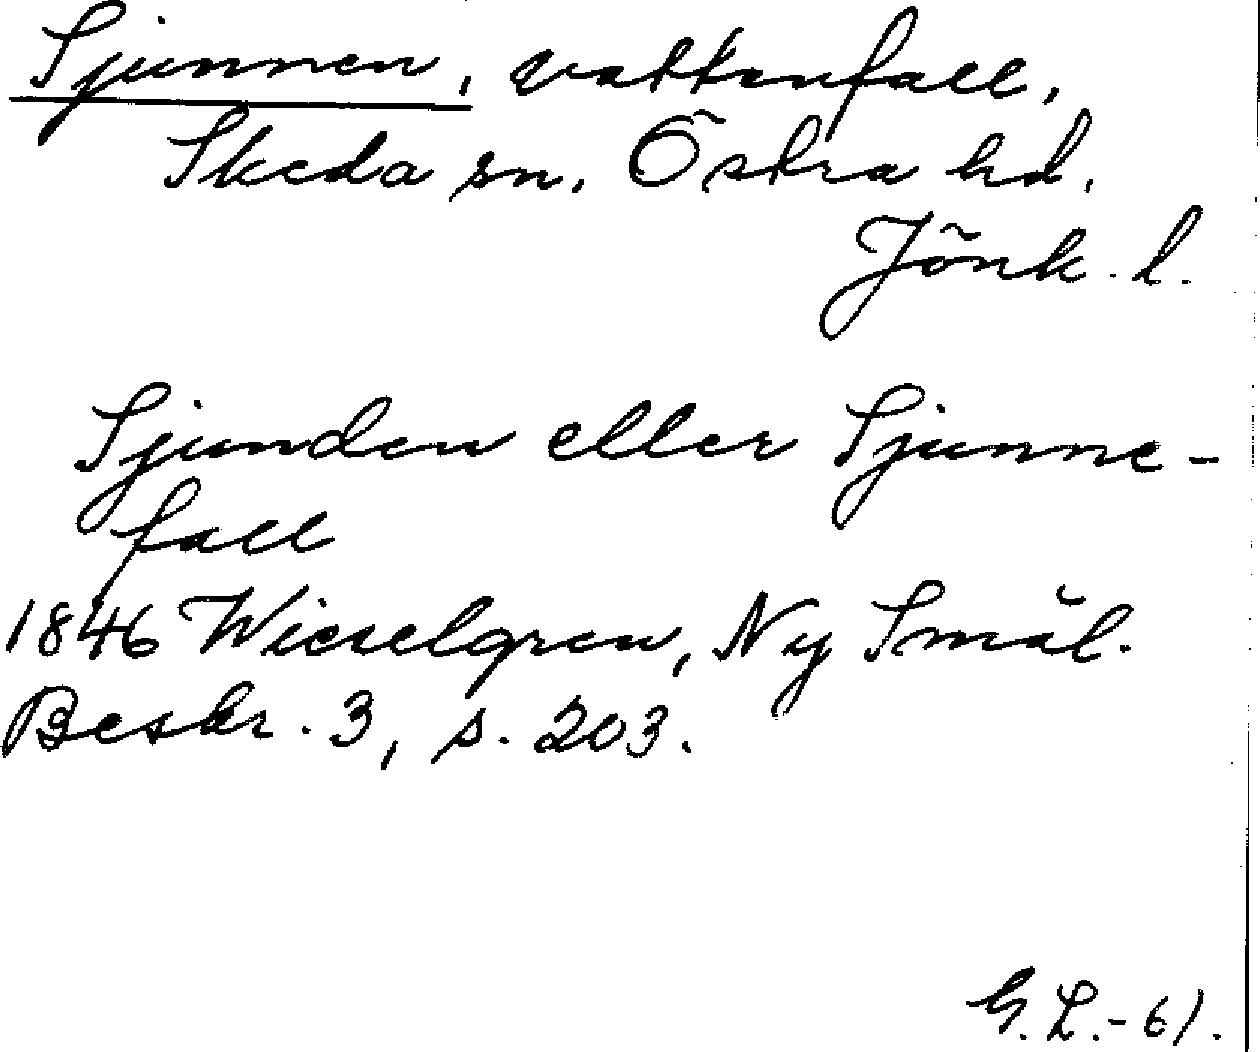 Sjunnen, vattenfall,
Skeda sn. Östra hd.
Jönk. l.
Sjunden eller Sjunne-
fall
1846 Wieselgren, Ny Smål.
Beskr. 3, s. 203.
G. L. - 61.